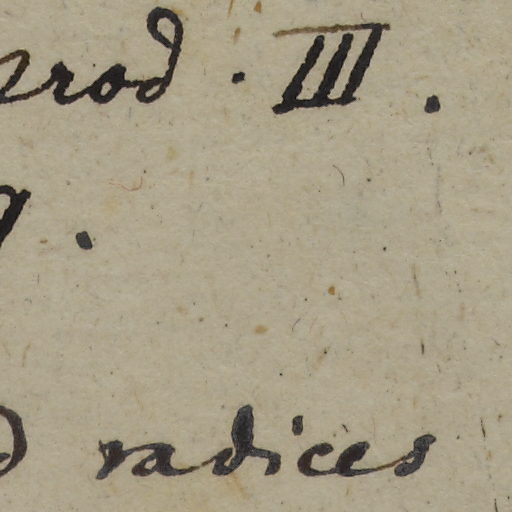 prod. III.
g.
d radices